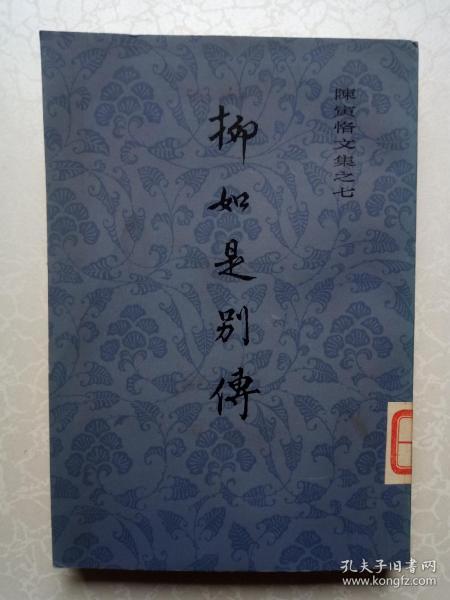 陳寅恪文集之七
柳如是别傳
孔夫子旧书网
www.kongfz.com